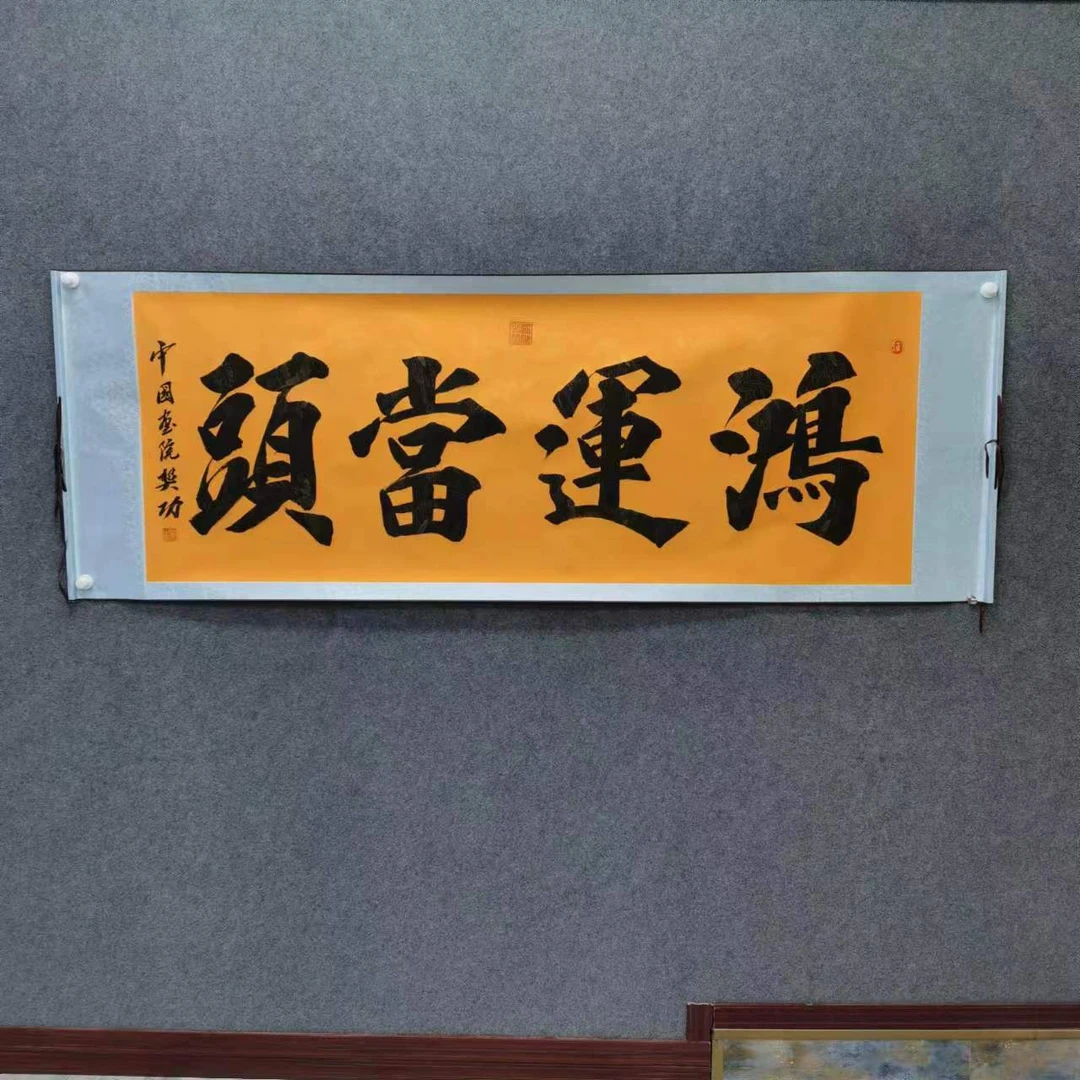 鴻運當頭
中國畫院樊功